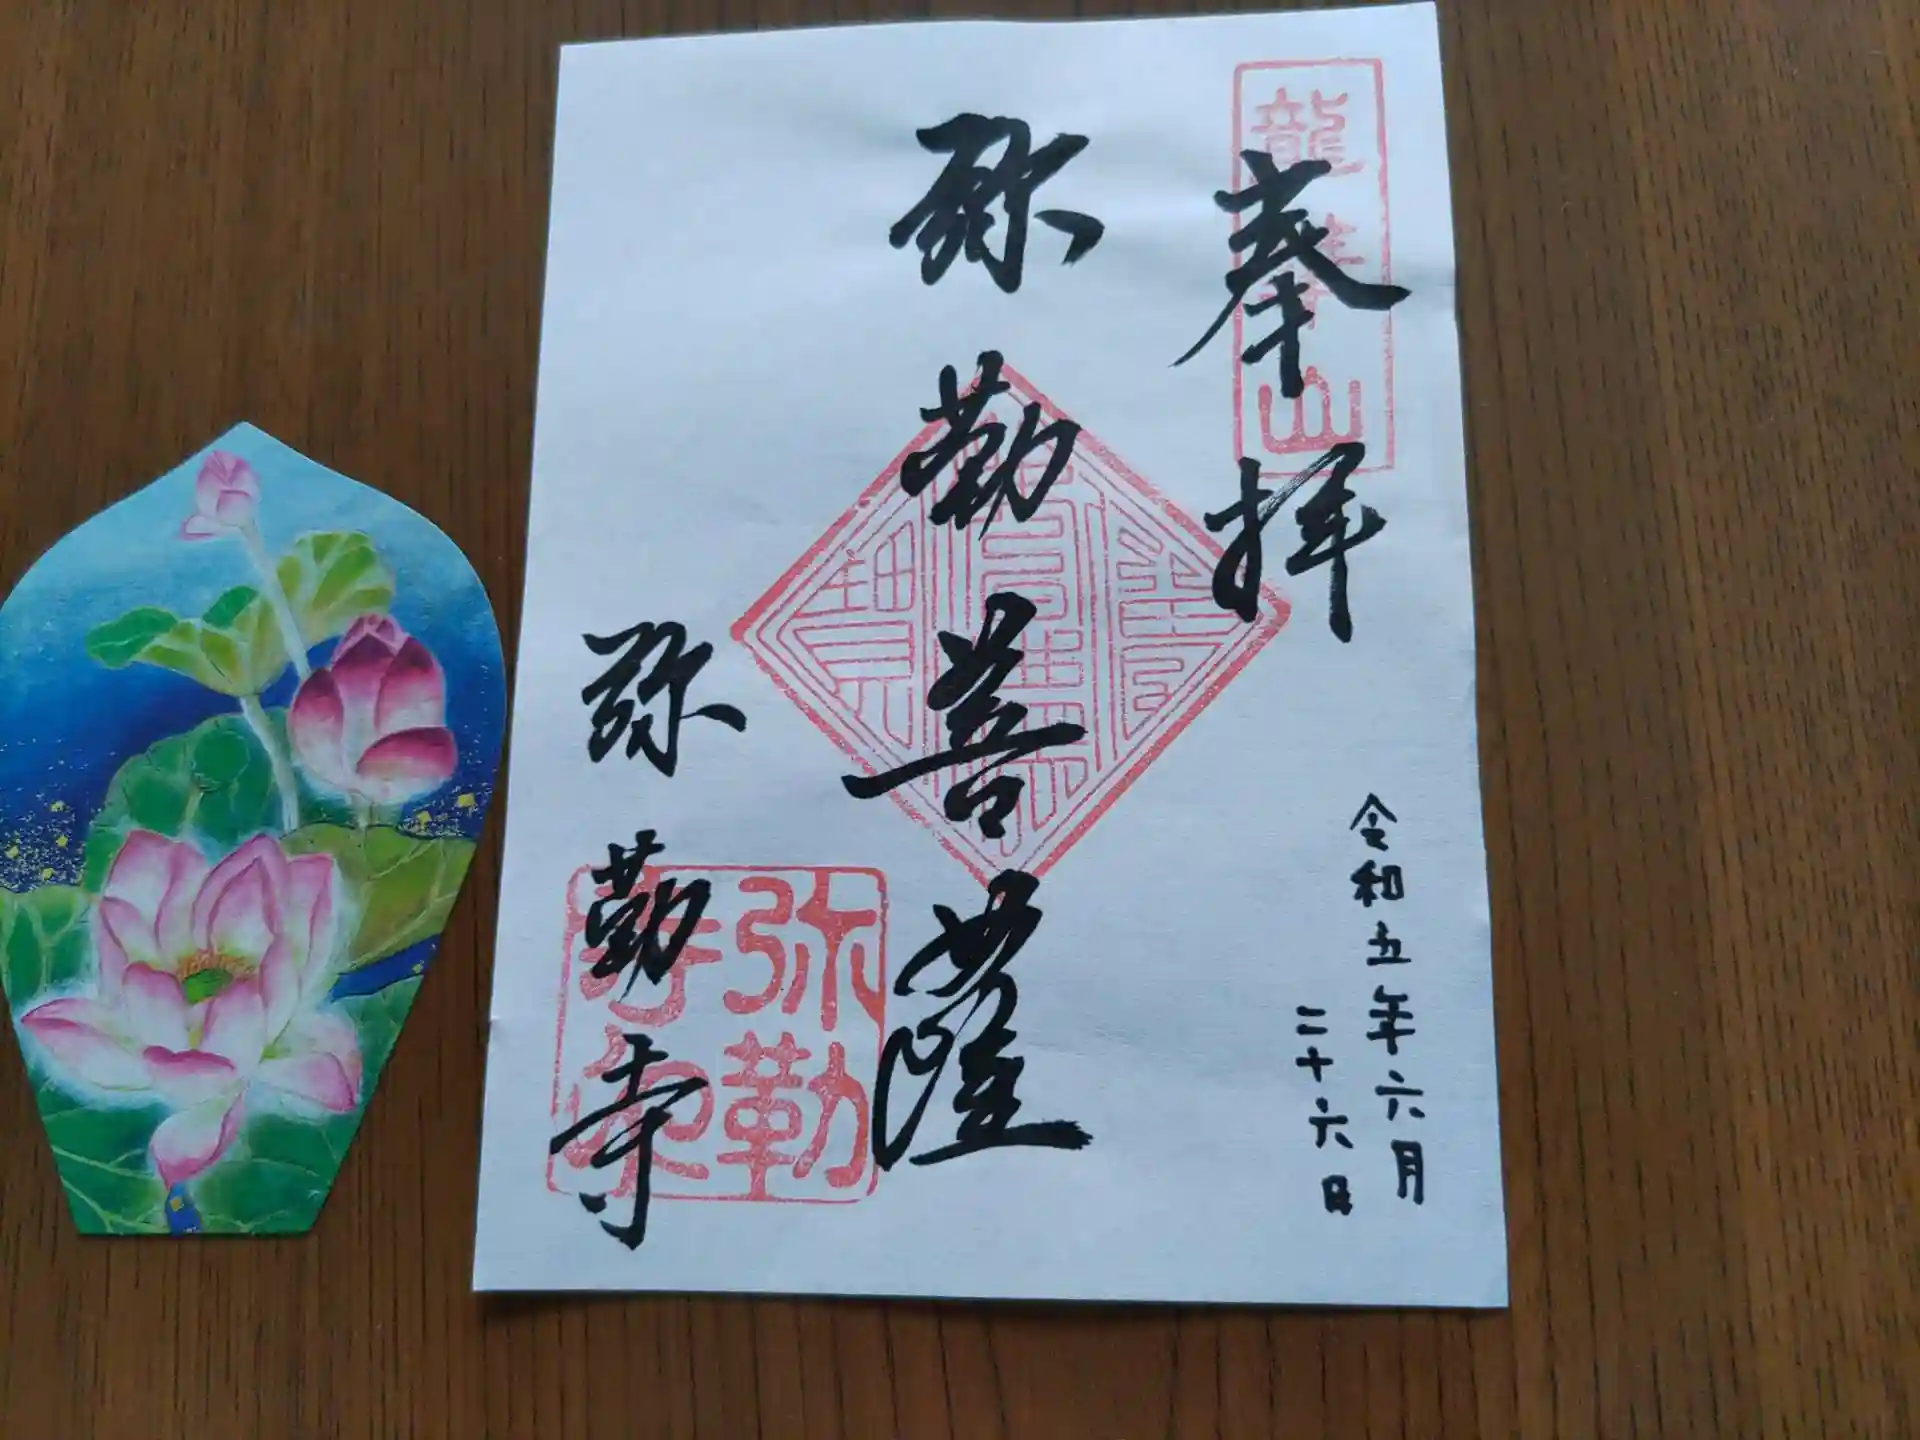 奉拝
龍華山
令和五年六月
二十六日
弥勒菩薩
弥勒寺
弥勒
寺印